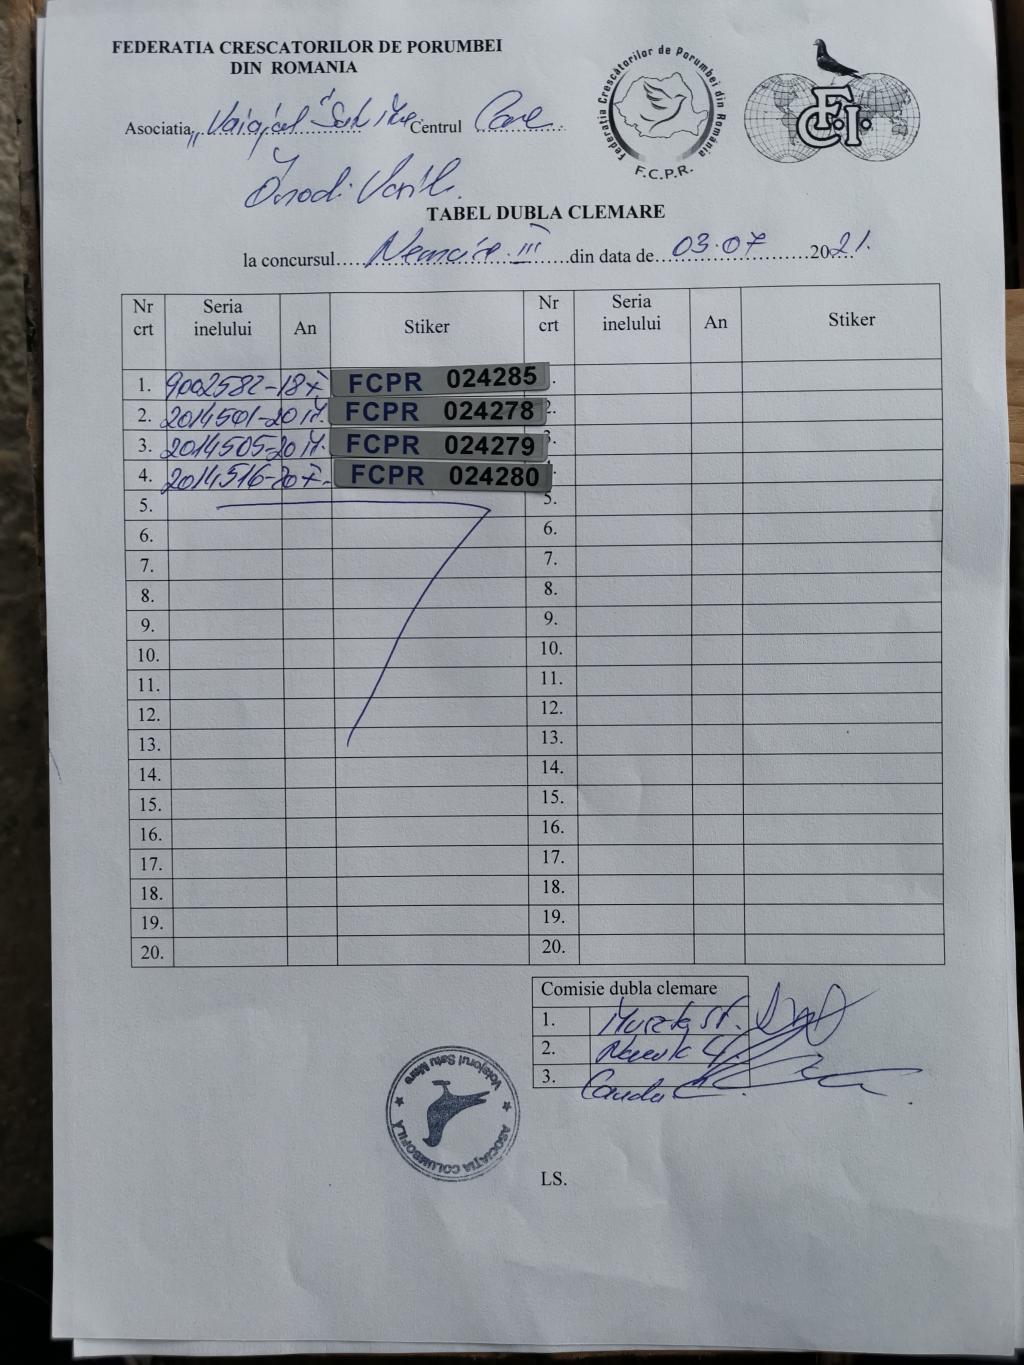 FEDERATIA CRESCATORILOR DE PORUMBEI
DIN ROMANIA
Federatia Crescătorilor de Porumbei din România
F.C.P.R.
F.C.I.
Asociatia Centrul
TABEL DUBLA CLEMARE
la concursul III din data de 03.07 2021.
Nr crt Seria inelului An Stiker Nr crt Seria inelului An Stiker
1. 9002582-18 F FCPR 024285
2. 2014501-20 M. FCPR 024278 2.
3. 2014505-20 M. FCPR 024279 3.
4. 2014516-20 F. FCPR 024280
5. 5.
6. 6.
7. 7.
8. 8.
9. 9.
10. 10.
11. 11.
12. 12.
13. 13.
14. 14.
15. 15.
16. 16.
17. 17.
18. 18.
19. 19.
20. 20.
Comisie dubla clemare
1.
2.
3.
ASOCIAŢIA COLUMBOFILĂ
Voiajorul Satu Mare
LS.